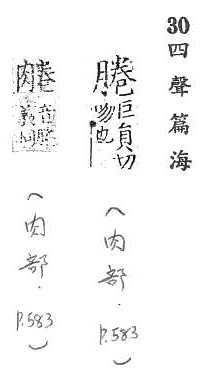 30 四聲篇海
腃巨貟切
吻也
（肉部．P.583）
義同
（肉部．P.583）